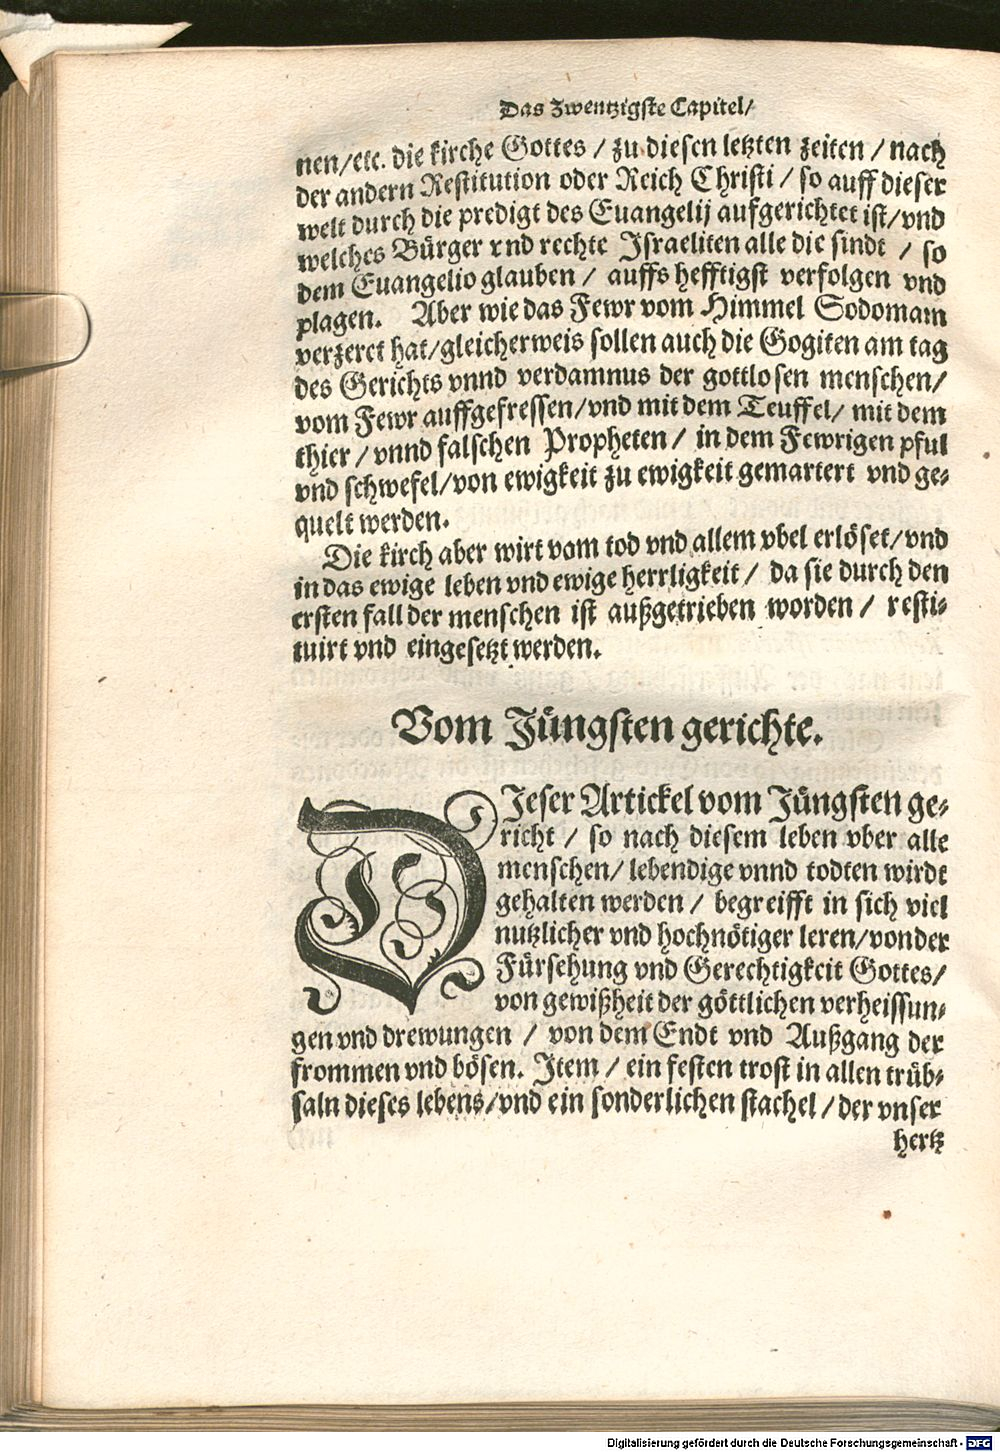 Das Zwentzigste Capitel/
nen/etc. die kirche Gottes / zu diesen letzten zeiten / nach
der andern Restitution oder Reich Christi / so auff dieser
welt durch die predigt des Euangelij aufgerichtet ist/vnd
welches Bürger vnd rechte Israeliten alle die sindt / so
dem Euangelio glauben / auffs hefftigst verfolgen vnd
plagen. Aber wie das Fewr vom Himmel Sodomam
verzeret hat/gleicherweis sollen auch die Gogiten am tag
des Gerichts vnnd verdamnus der gottlosen menschen/
vom Fewr auffgefressen/vnd mit dem Teuffel/ mit dem
thier / vnnd falschen Propheten / in dem Fewrigen pful
vnd schwefel/von ewigkeit zu ewigkeit gemartert vnd ge-
quelt werden.
Die kirch aber wirt vom tod vnd allem vbel erlöset/vnd
in das ewige leben vnd ewige herrligkeit / da sie durch den
ersten fall der menschen ist außgetrieben worden / resti-
tuirt vnd eingesetzt werden.
Vom Jüngsten gerichte.
DJeser Artickel vom Jüngsten ge-
richt / so nach diesem leben vber alle
menschen/ lebendige vnnd todten wirdt
gehalten werden / begreifft in sich viel
nutzlicher vnd hochnötiger leren/von der
Fürsehung vnd Gerechtigkeit Gottes/
von gewißheit der göttlichen verheissun-
gen vnd drewungen / von dem Endt vnd Außgang der
frommen vnd bösen. Item / ein festen trost in allen trüb-
saln dieses lebens/vnd ein sonderlichen stachel / der vnser
hertz
Digitalisierung gefördert durch die Deutsche Forschungsgemeinschaft - DFG